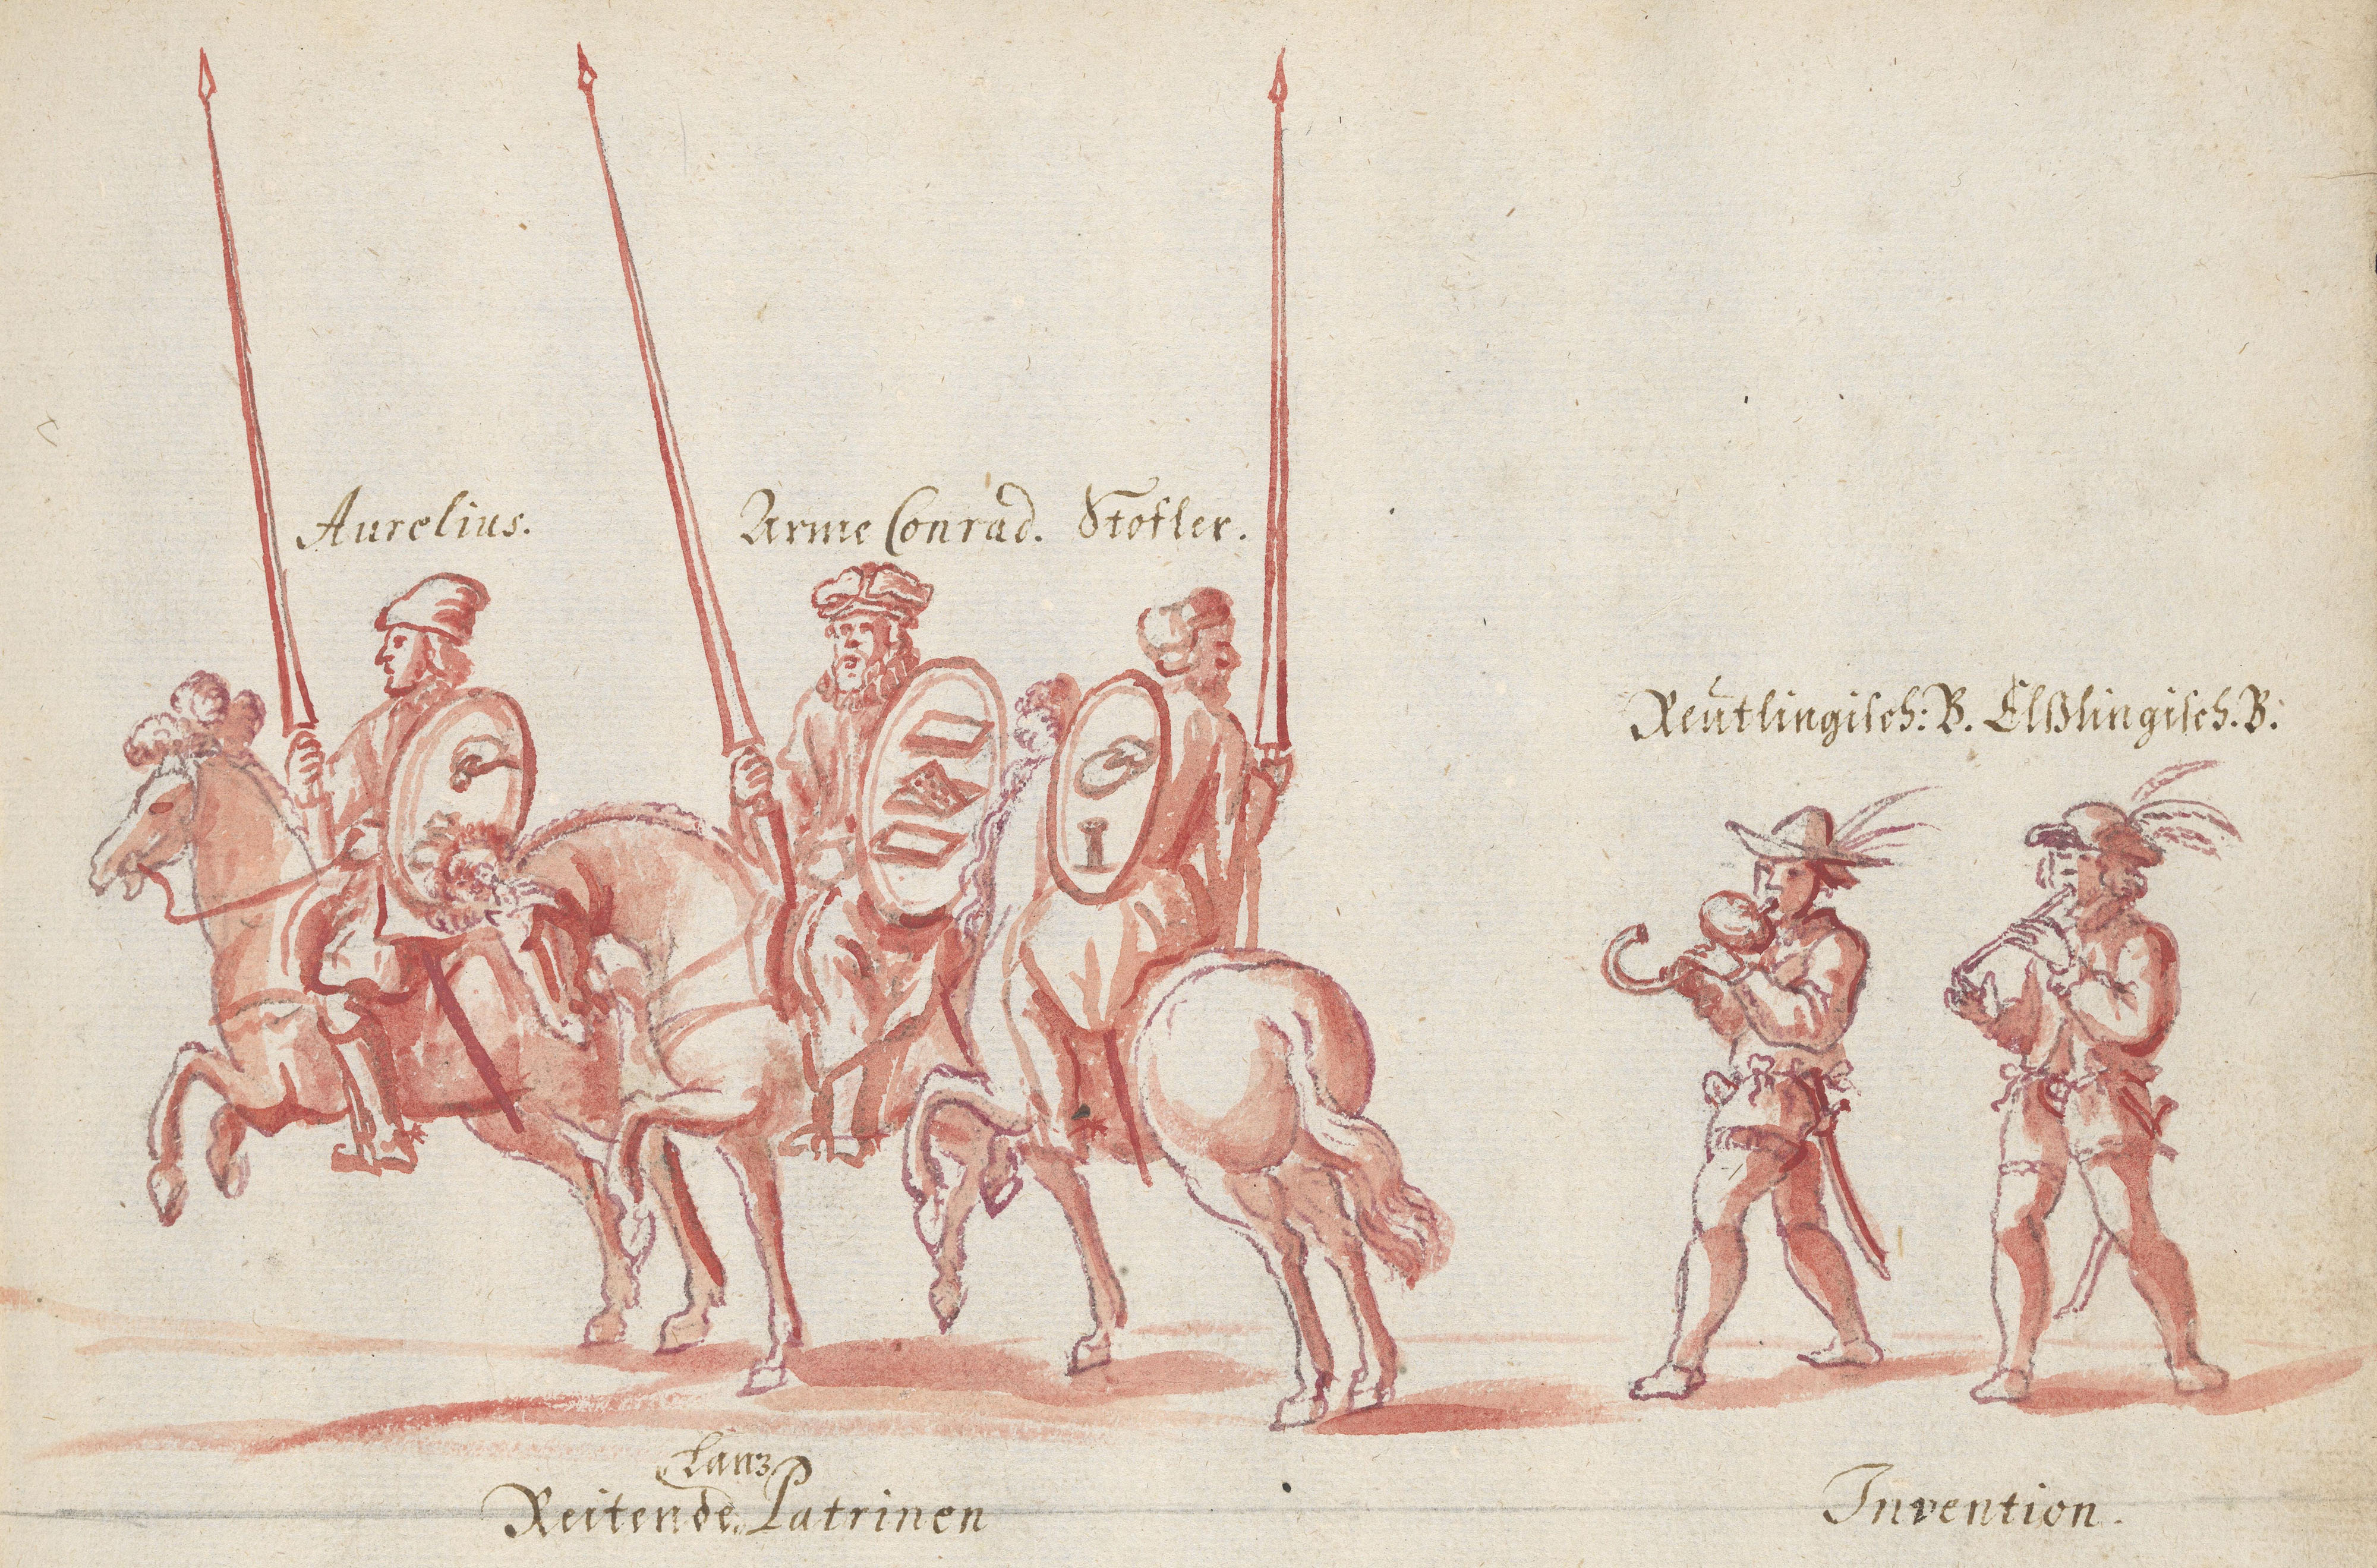 Aurelius.
Arme Conrad. Stofler.
Reütlingisch: B. Eßlingisch. B.
Lanz
Reitende Patrinen
Invention.